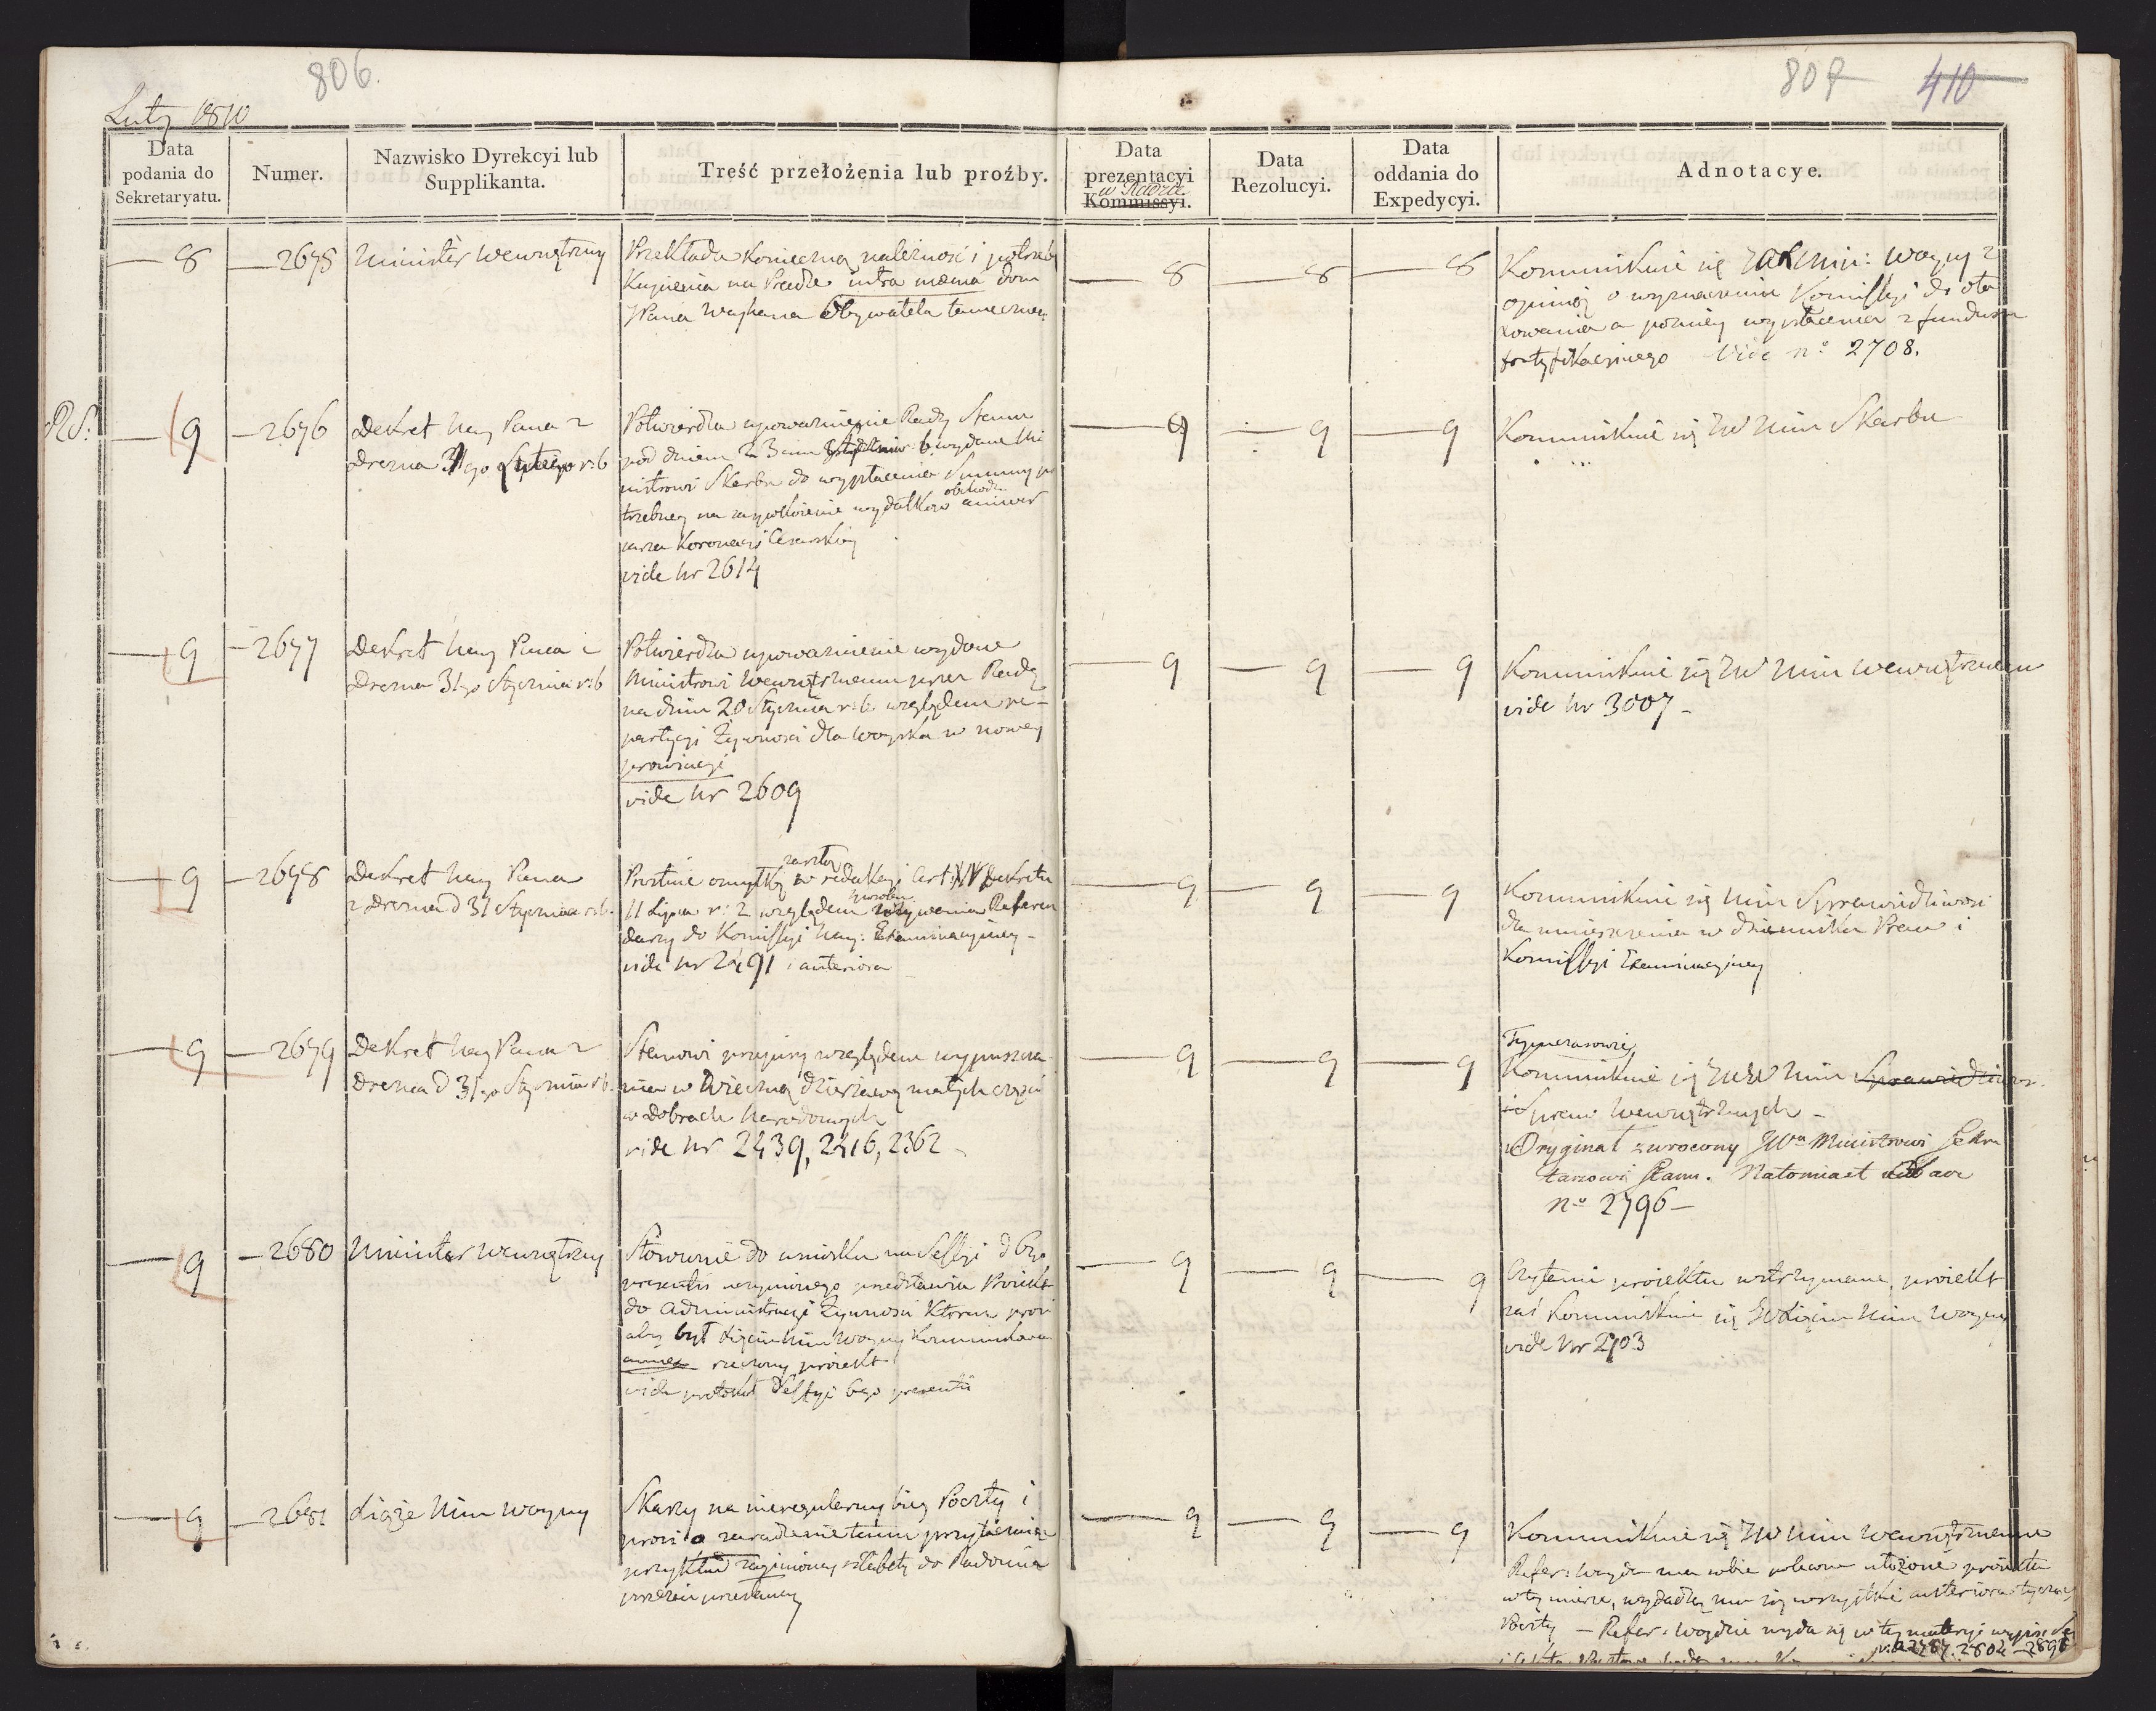 806.
807 410
Luty 1810
Data podania do Sekretaryatu.
Numer.
Nazwisko Dyrekcyi lub Supplikanta.
Treść przełożenia lub proźby.
Data prezentacyi w Radzie Kommissyi.
Data Rezolucyi.
Data oddania do Expedycyi.
Adnotacye.
8
2675
Minister Wewnętrzny
Przekłada konieczną należność i potrzebę
Kupienia na Pradze intra mænia dom
JPana Obywatela
8
8
8
Kommunikuie się Min: Woyny z
opinią o wyznaczenie Komissyi do
a poźniey wypłacenia z funduszu
fortyfikacyinego Vide nº 2708.
9
2676
Dekret Nay Pana z
Drezna 31go r: b
Potwierdza upoważnienie Rady Stanu
pod dniem 23 r. b. wydane Mi
nistrowi Skarbu do wypłacenia Summy po
trzebney na zaspokoienie wydatków obchodu anniwer
sarza Koronacyi Cesarskiey
vide Nr 2614
9
9
9
Kommunikuie się JW Min Skarbu
9
2677
Dekret Nay Pana z
Drezna 31go Stycznia r: b
Potwierdza upoważnienie wydane
Ministrowi Wewnętrznemu przez Radę
na dniu 20 Stycznia r: b. względem re-
partycyi Żywności dla Woyska w nowey
prowincyi
vide Nr 2609
9
9
9
Kommunikuie się JW Min Wewnętrznemu
vide Nr 3007
9
2678
Dekret Nay Pana
z Drezna d 31 Stycznia r: b.
Prostuie omyłkę zaszłą w redakcyi Art: XIV Dekretu
11 Lipca r: z względem Referen
darzy do Komissyi Nay: Examinacyiney
vide Nr 2491 i anteriora
9
9
9
Kommunikuie się Min Sprawiedliwości
dla umieszczenia w dzienniku Praw i
Komissyi Examinacyiney
9
2679
Dekret Nay Pana z
Drezna d 31go Stycznia r b.
Stanowi przepisy względem wypuszcza
nia w Wieczną dzierżawę małych części
w dobrach Narodowych
vide Nr 2439, 2416, 2362
9
9
9
Tymczasowie
Kommunikuie się JWW Min Sprawiedliwos.
i Spraw: Wewnętrznych
Oryginał zwrocony JWu Ministrowi Sekre
tarzowi Stanu. Natomiast
nº 2796
9
2680
Minister Wewnętrzny
Stosownie do wniosku na Sessyi d 6go
presentis uczynionego przedstawia Proiekt
do Administracyi Żywności który prosi
aby był Xięciu Min Woyny Kommunikowan
rzeczony proiekt
vide protokół Sessyi 6go presentis
9
9
9
Czytanie proiektu wstrzymane, proiekt
zaś Kommunikuie się JO Xięciu Min Woyny
vide Nr 2703
9
2681
Xiąże Min Woyny
Skarży na nieregularny bieg Poczty i
prosi o zaradzenie temu przytaczaiąc
przykład zaginioney sztafety do Radomia
przezeń przesłaney
9
9
9
Kommunikuie się JW Min Wewnętrznemu
Refer: Woyda ma sobie polecone ułożenie proiektu
w tey mierze, wydadzą mu się wszystkie anteriora tyczące
Poczty — Refer: Woydzie wyda się w tey materyi
vide 2787. 2804 — 2896